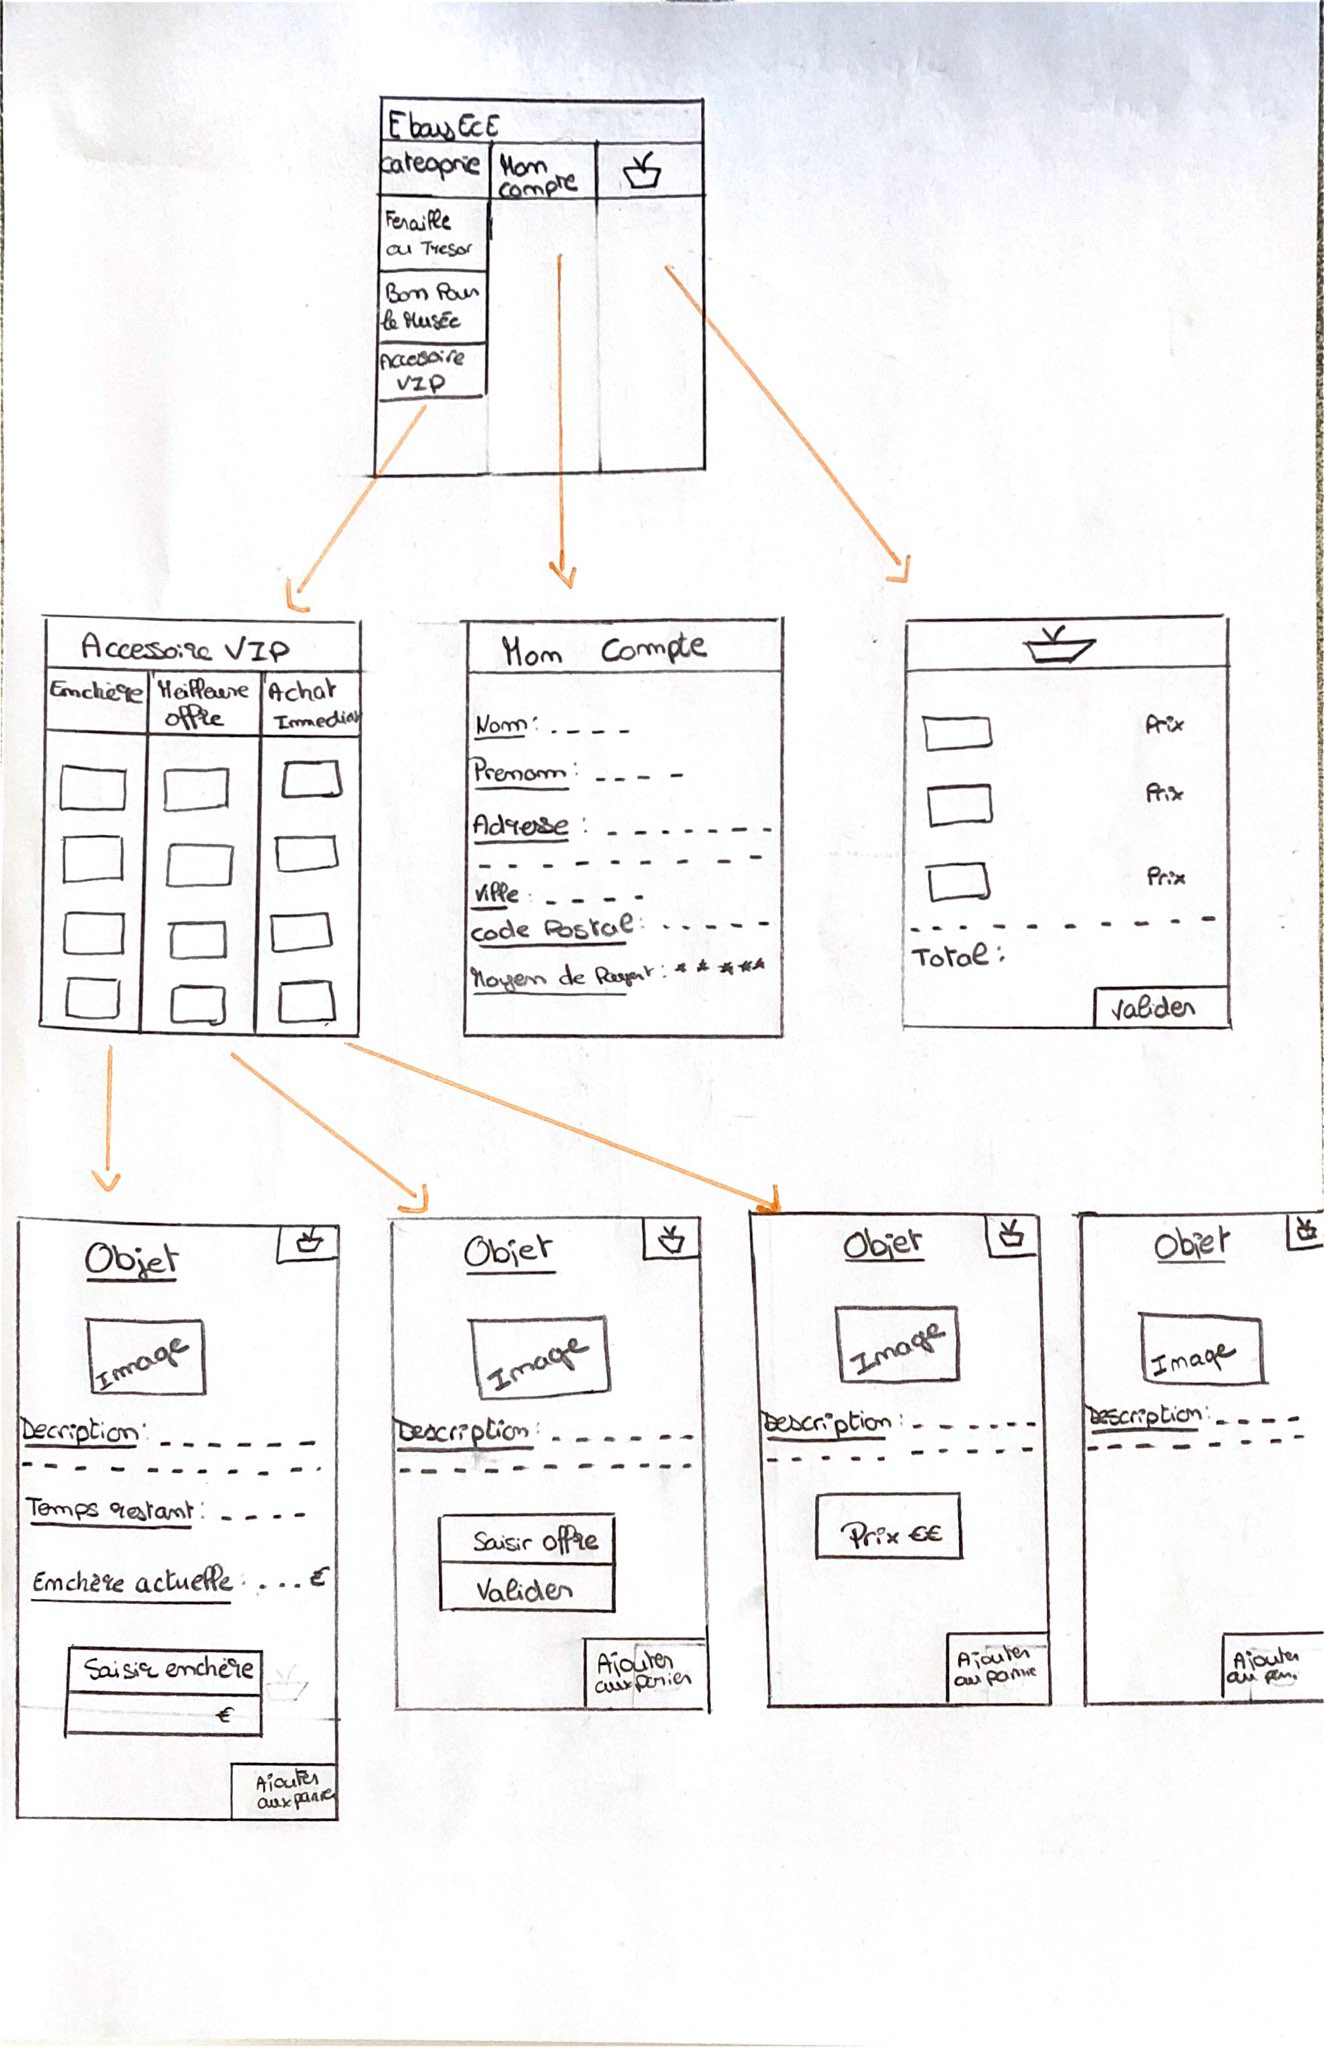 Ebay ECE
categorie
Mon
compte
Feraille
ou Tresor
Bon Pour
le Musée
Accessoire
VIP
Accessoire VIP
Enchère
Meilleure
offre
Achat
Immediat
Mon Compte
Nom :
Prenom :
Adresse :
Ville :
code Postal :
Moyen de Payent : * * * * *
Prix
Prix
Prix
Total :
Valider
Objet
Image
Decription :
Temps restant :
Enchère actuelle : . . . . €
Saisir enchère
€
Ajouter
aux panier
Objet
Image
Description :
Saisir offre
Valider
Ajouter
aux panier
Objet
Image
Description :
Prix €€
Ajouter
au panie
Objet
Image
Description :
Ajouter
au